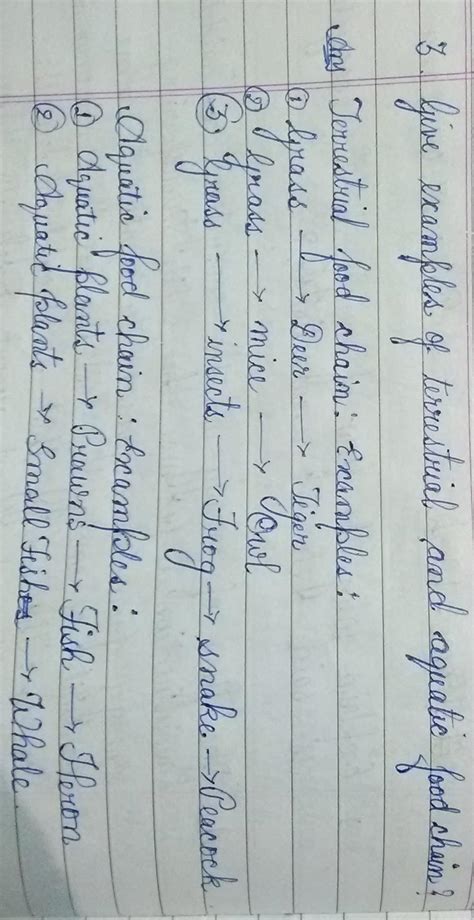 3. Give examples of terrestrial and aquatic food chain?
Ans Terrestrial food chain: Examples:
① Grass → Deer → Tiger
② Grass → mice → Owl
③ Grass → insects → Frog → snake → Peacock
Aquatic food chain: Examples:
① Aquatic plants → Prawns → Fish → Heron
② Aquatic plants → Small Fishes → Whale